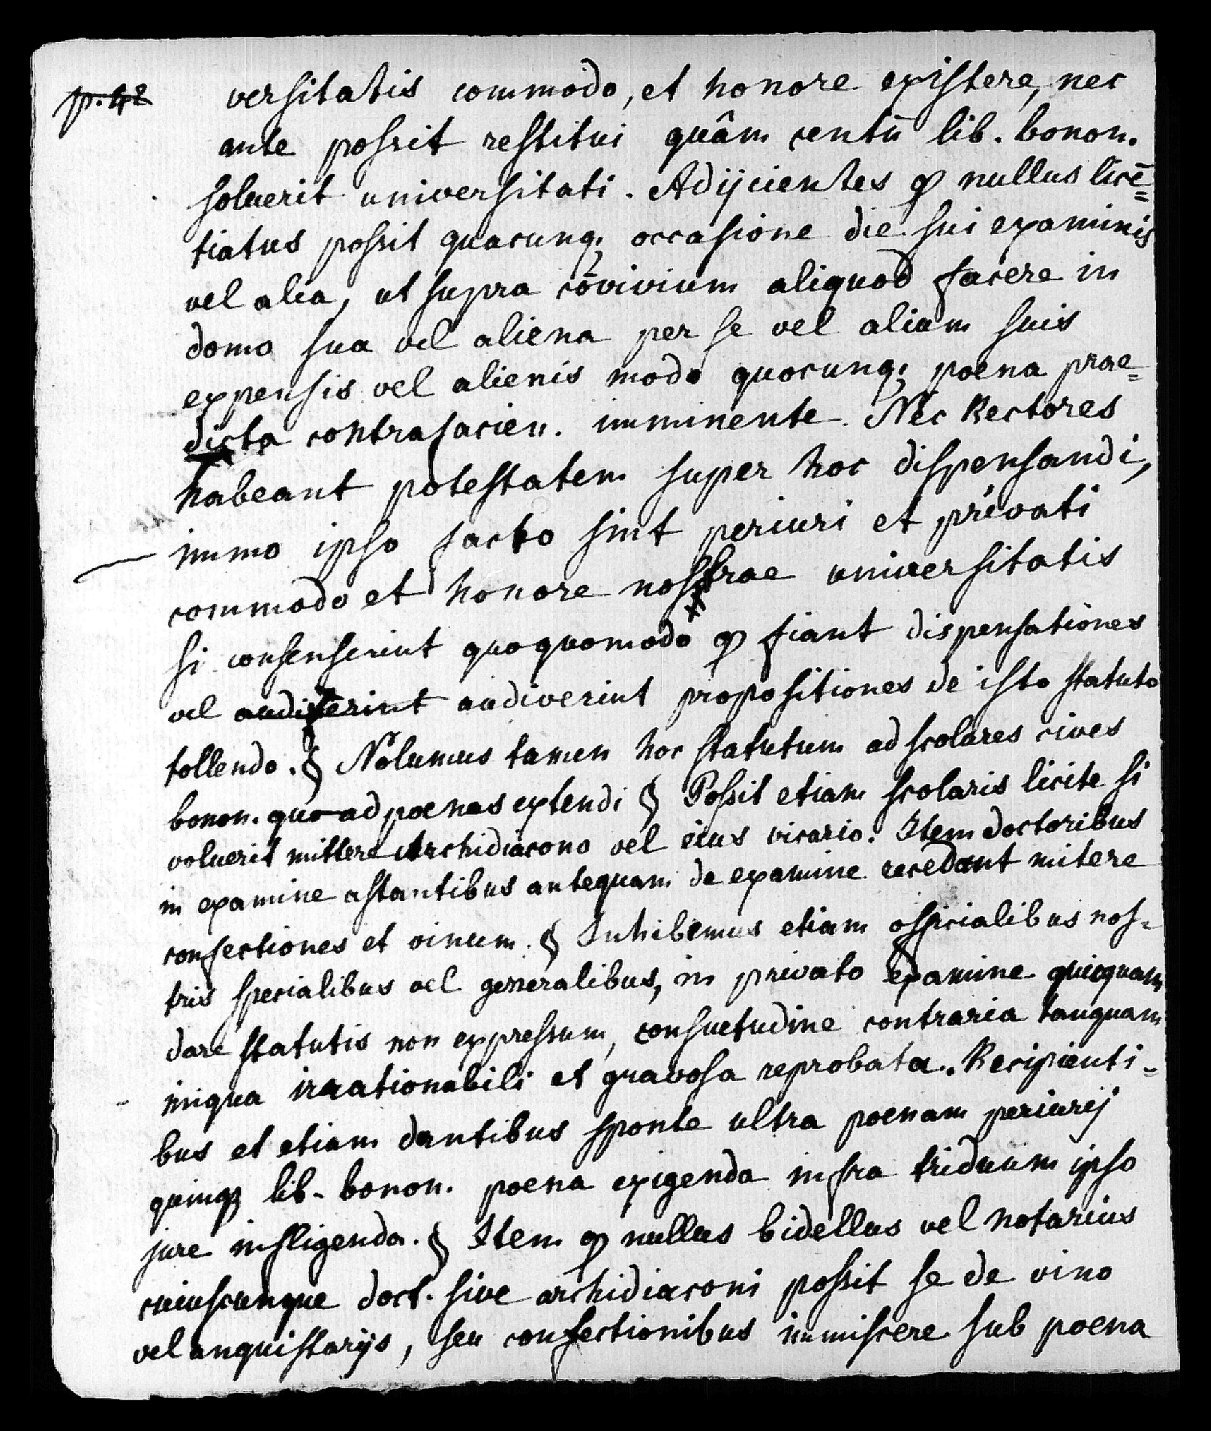 p. 42 versitatis commodo, et honore existere, nec
ante possit restitui quâm centū lib. bonon.
soluerit universitati. Adijcientes ꝙ nullus licē=
tiatus possit quacunq; occasione die sui examinis
vel alia, ut supra cōvivium aliquod facere in
domo sua vel aliena per se vel alium suis
expensis vel alienis modo quocunq; poena prae=
dicta contrafacien. imminente. Nec Rectores
habeant potestatem super hoc dispensandi,
immo ipso facto sint periuri et privati
commodo et honore nostrae universitatis
si consenserint quoquomodo ꝙ fiant dispensationes
vel audiverint audiverint propositiones de isto statuto
tollendo. § Nolumus tamen hoc statutum ad scolares cives
bonon. quo ad poenas extendi § Possit etiam scolaris licite si
voluerit mittere Archidiacono vel eius vicario. Item doctoribus
in examine astantibus antequam de examine recedant mitere
confectiones et vinum. § Inhibemus etiam officialibus nos-
tris specialibus vel generalibus, in privato examine quicquam
dare statutis non expressum, consuetudine contraria tanquam
iniqua irrationabili et gravosa reprobata. Recipienti-
bus et etiam dantibus sponte ultra poenam periurij
quinqꝫ lib. bonon. poena exigenda infra triduum ipso
jure infligenda. § Item ꝙ nullus bidellus vel notarius
cuiuscunque doct. sive archidiaconi possit se de vino
vel anquistarijs, seu confectionibus immiscere sub poena